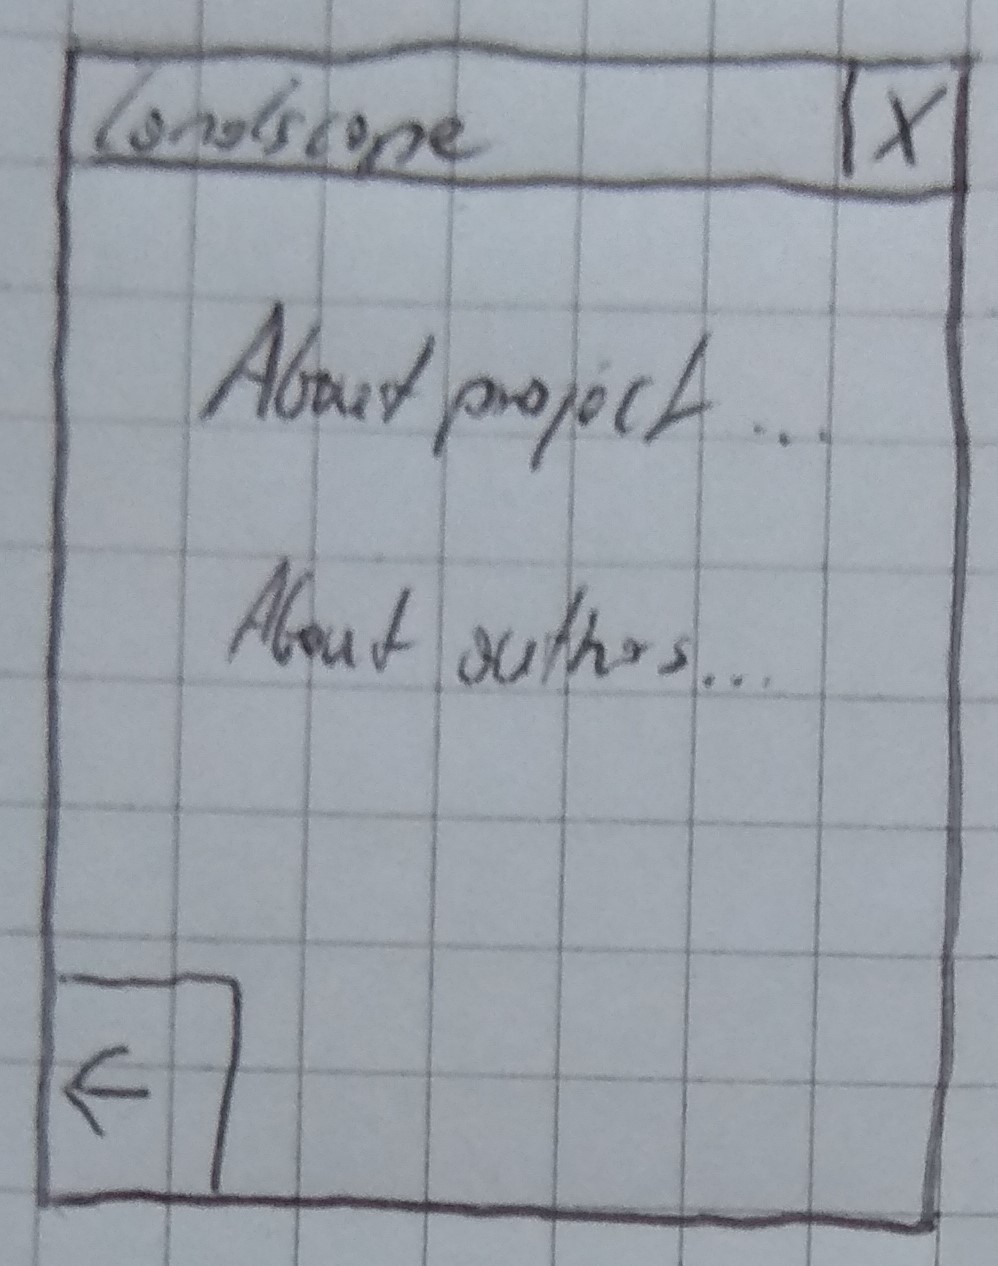 Landscape X
About project ...
About authors...
←